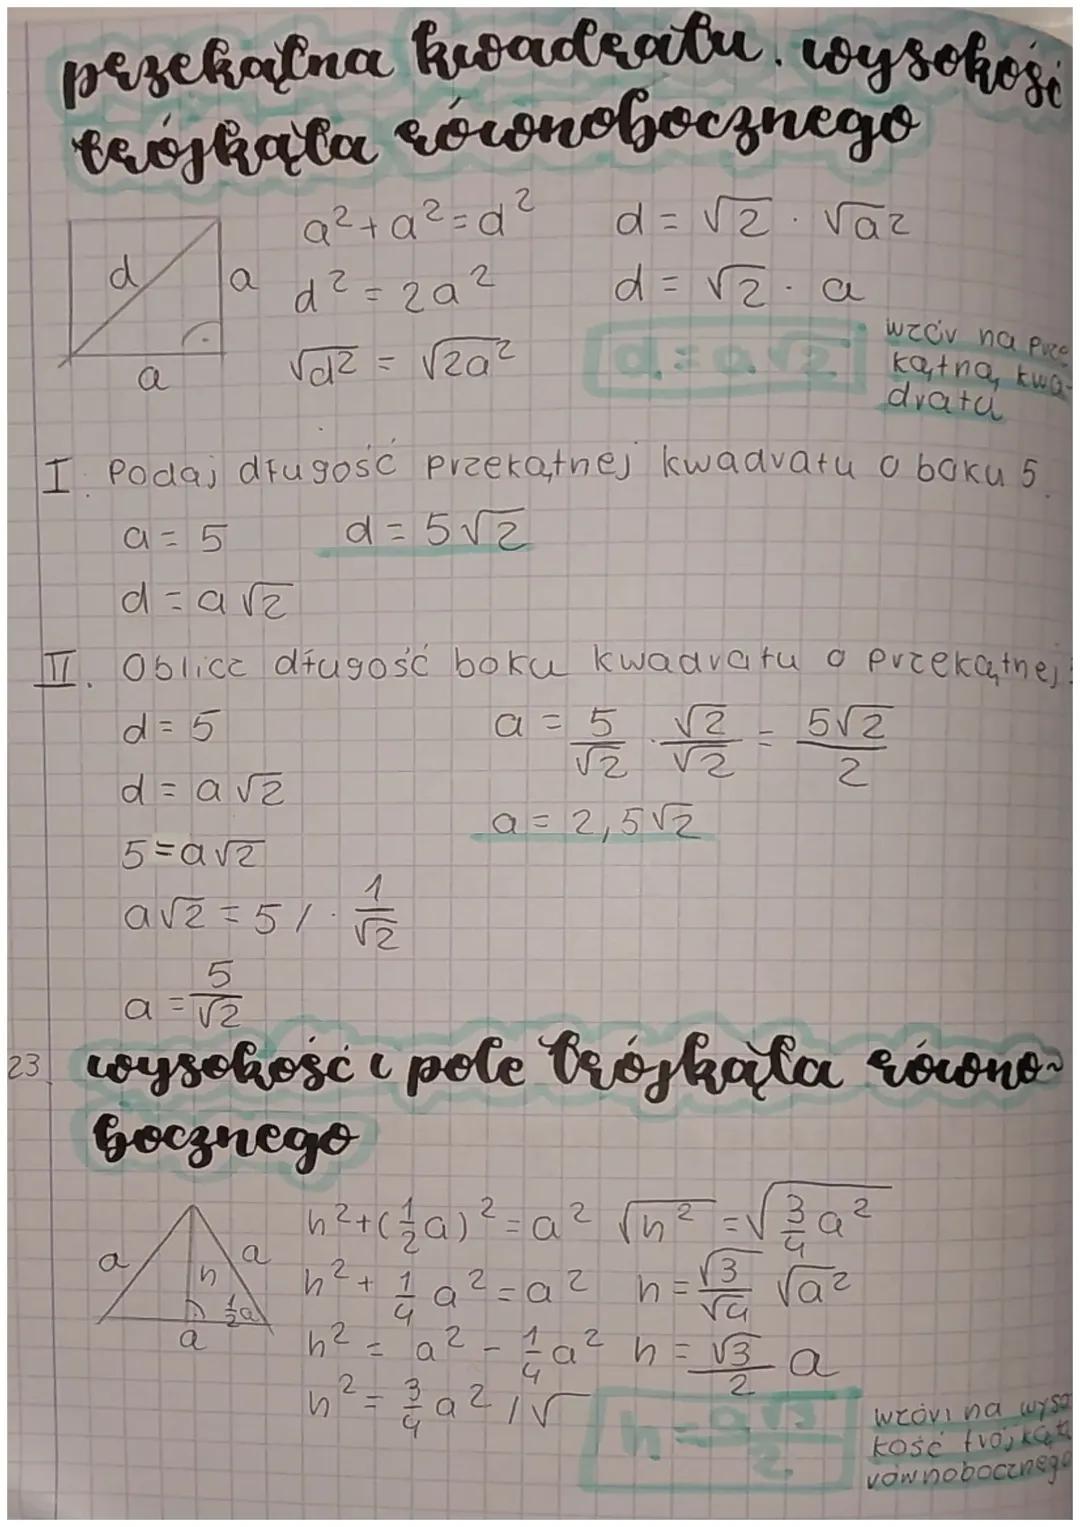 przekątna kwadratu. wysokość
trójkąta równobocznego
a² + a² = d²
d² = 2a²
√d² = √2a²
d = √2 · √a²
d = √2 · a
d = a√2
wzór na prze
kątną kwa-
dratu
d
a
a
I. Podaj długość przekątnej kwadratu o boku 5.
a = 5
d = 5√2
d = a√2
II. Oblicz długość boku kwadratu o przekątnej
d = 5
d = a√2
5 = a√2
a√2 = 5 / · 1/√2
a = 5/√2
a = 5/√2 · √2/√2 = 5√2/2
a = 2,5√2
23 wysokość i pole trójkąta równo-
bocznego
a
a
h
½a
a
h² + (½a)² = a²
h² + ¼a² = a²
h² = a² - ¼a²
h² = ¾a² /√
√h² = √¾a²
h = √3/√4 √a²
h = √3/2 a
h = a√3/2
wzór na wyso
kość trójkąta
równobocznego